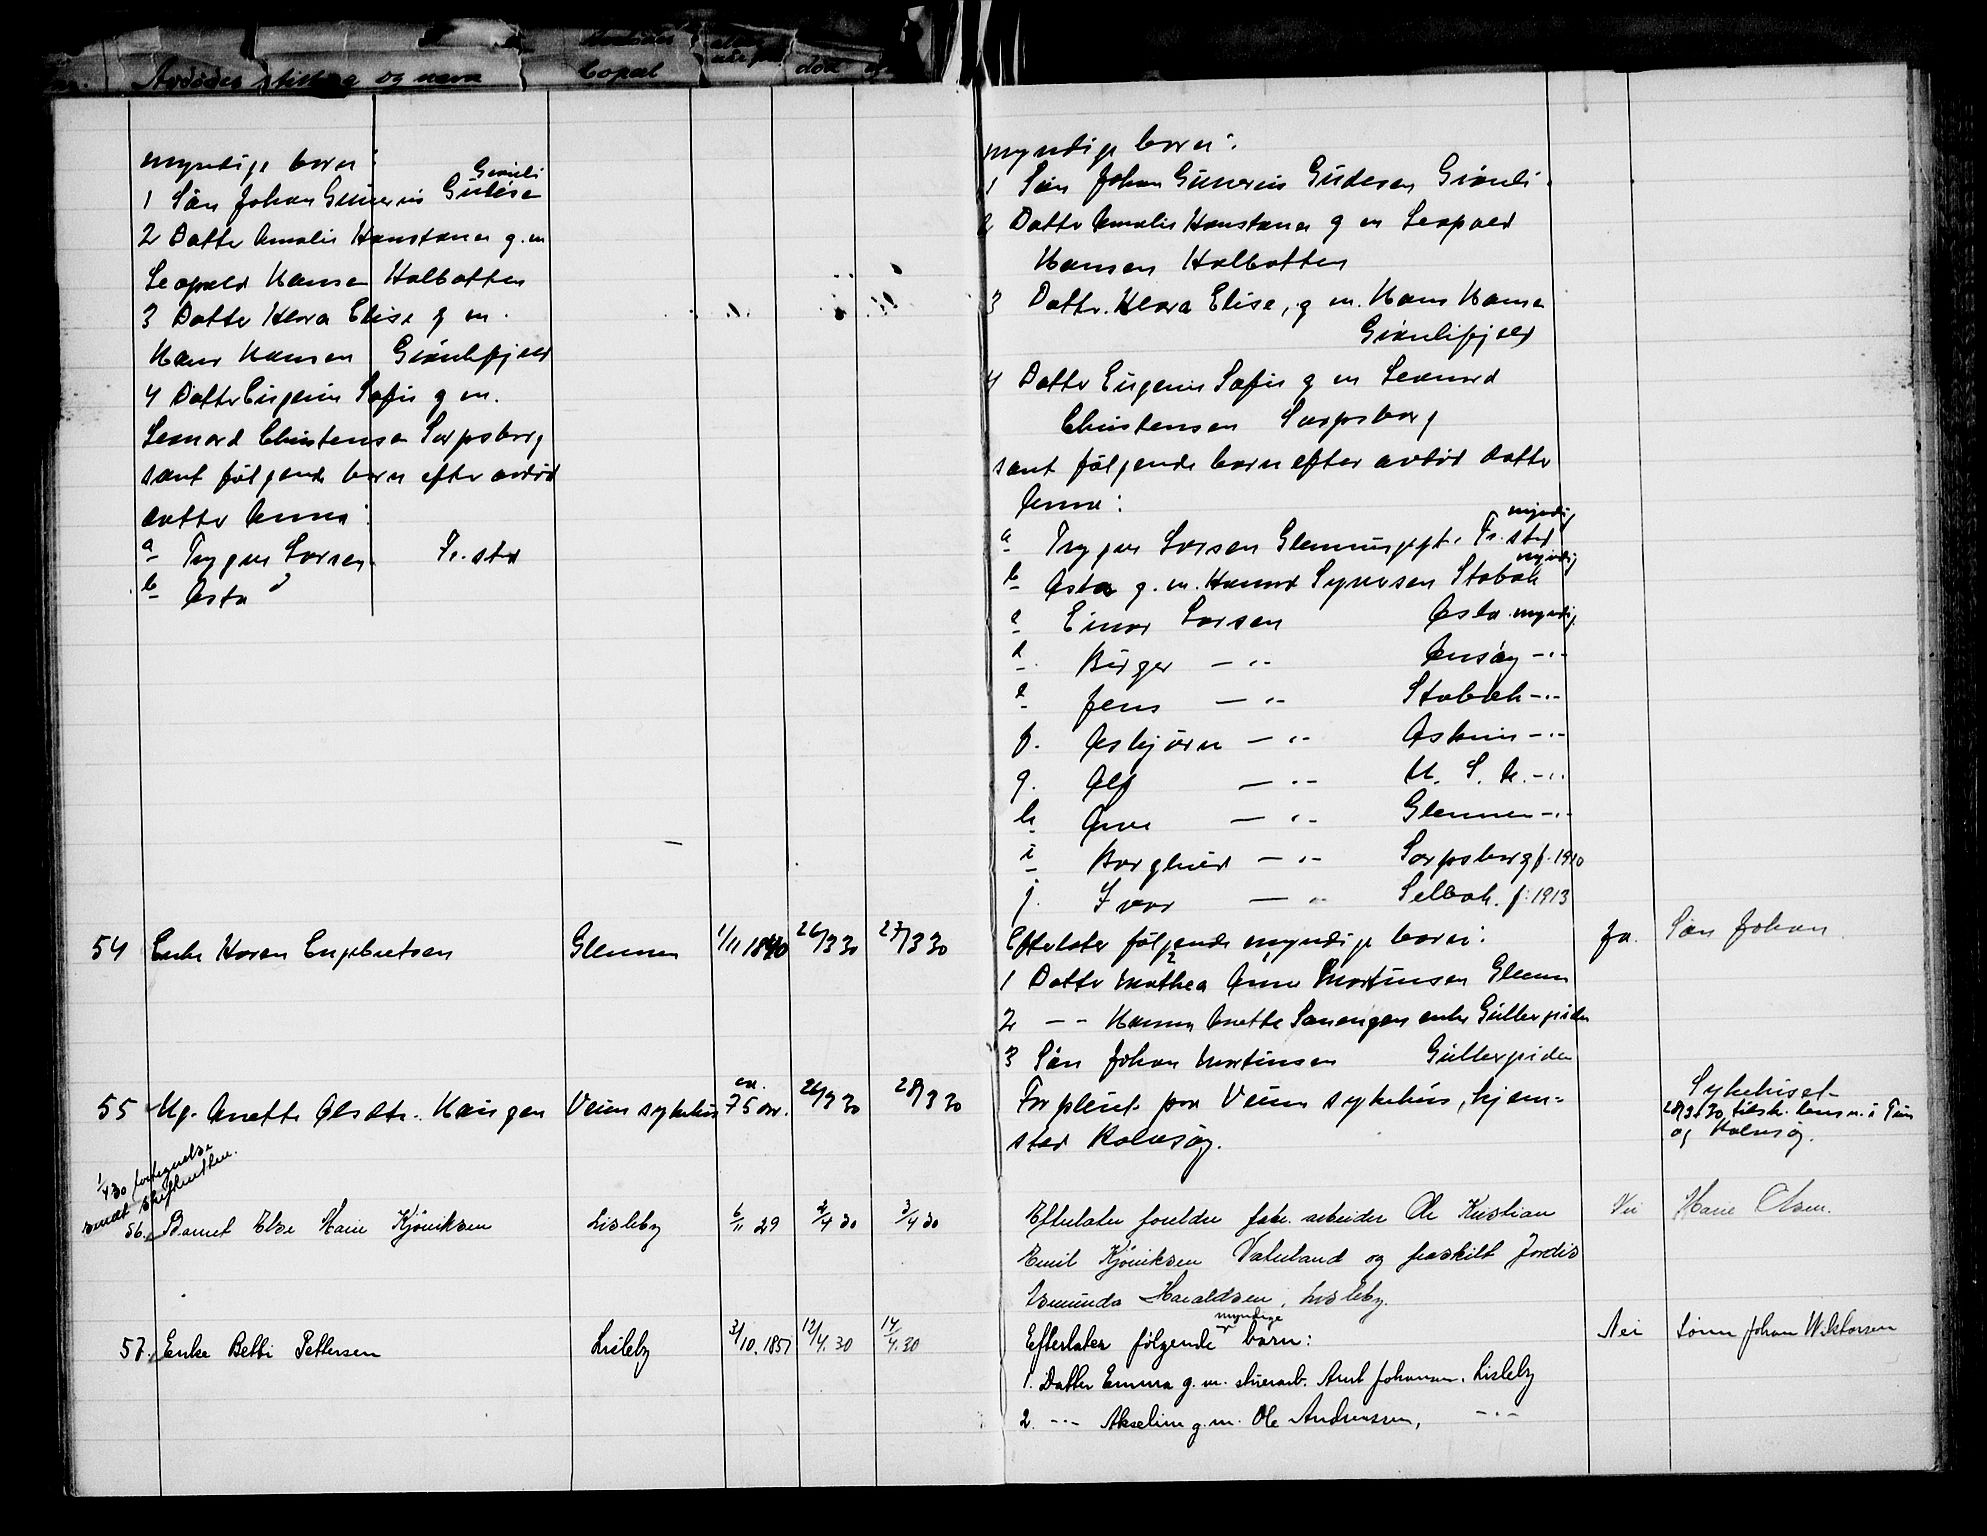 Avdødes stilling og navn
Bopæl
død
myndige børn:
Grønli
1 Søn Johan Gunerius Gudesen
2 Datter Amalie Konstanse g. m.
Leopold Hansen Kalbotten
3 Datter Klara Elise g m.
Hans Hansen Grønlifjeld
4 Datter Eugenie Sofie g m.
Leonard Christensen Sarpsborg
samt følgende børn efter avdød
datter Anna:
a Trygve Larsen Fr. stad
b Asta "
myndige børn:
1 Søn Johan Gunerius Gudesen Grønli
2 Datter Amalie Konstanse g m Leopold
Hansen Kalbotten
3 Datter Klara Elise, g m. Hans Hansen
Grønlifjeld
4 Datter Eugenie Sofie g m Leonard
Christensen Sarpsborg
samt følgende børn efter avdød datter
Anna:
myndig
a Trygve Larsen Glemmengt. Fr. stad
myndig
b Asta g. m. Syversen Stabæk
c Einar Larsen Oslo myndig
d Birger — " — Ansøy — " —
e Jens — " — Stabæk — " —
f. Asbjørn — " — Askim — " —
g. Alf — " — U. S. A. — " —
h Arne — " — Glemmen — " —
i Borghild — " — Sarpsborg f. 1910
j. Ivar — " — Selbak. f. 1913
54 Enke Karen Engebretsen Glemmen 1/11 1840 26/3 30 27/3 30 Efterlater følgende myndige børn: Ja. Søn Johan.
2 1
1 Datter Mathea Anne Martinsen Glemm
2 — " — Hanna Anette Sørengen enke Gullergsiden
3 Søn Johan Martinsen Gullergsiden
55 Ug. Anette Olsdtr. Haugen Veum sykehus ca. 75 aar. 26/3 30 28/3 30 Forpleiet paa Veum sykehus, hjem=
sted Rolvsøy.
Sykehuset
28/3 30 tilskr. lensm. i Tune
og Rolvsøy.
1/4 30 fortegnelse
sendt skifteretten.
56. Barnet Else Marie Kjøniksen Lisleby 6/11 29 2/4 30 3/4 30 Efterlater foreldre fabr. arbeider Ole Kristian Nei Marie Olsen.
Emil Kjøniksen Vaterland og fraskilt Jordis
Haraldsen, Lisleby.
myndige
57. Enke Betti Pettersen Lisleby 3/10. 1857 12/4. 30 14/4. 30 Efterlater følgende børn: Nei Sønn Johan Wiktorsen
1. Datter Emma g. m. Arnt Johansen, Lisleby
2. — " — Akseline g. m. Ole Andreassen, — " —